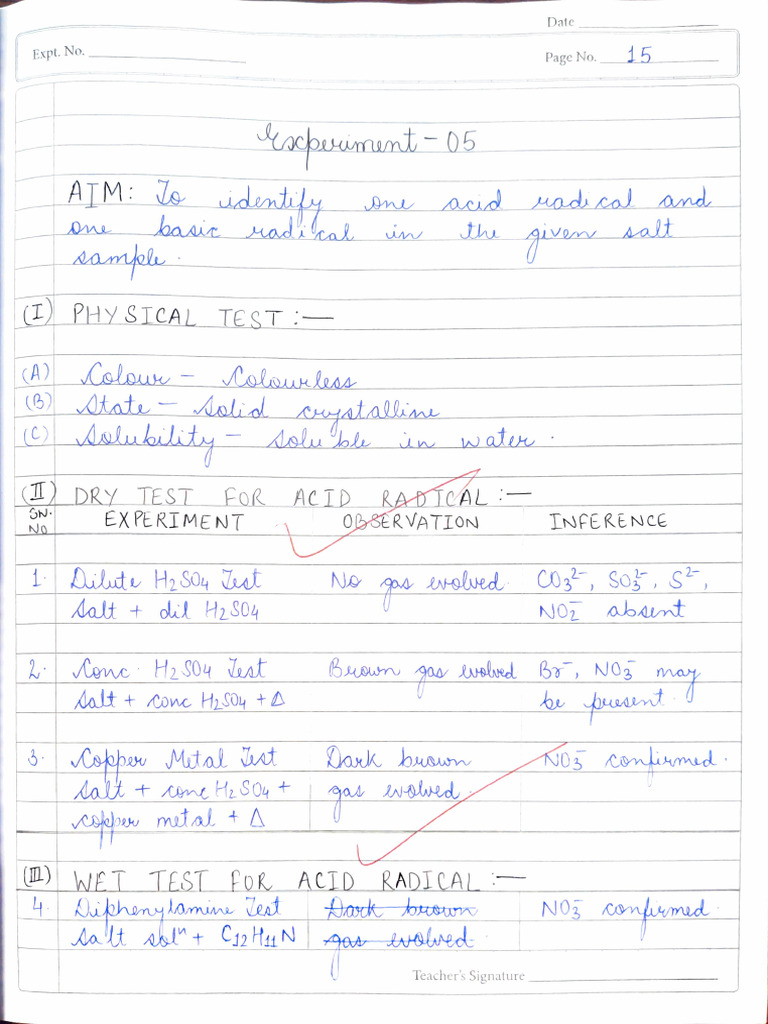 Date
Expt. No.
Page No. 15
Experiment - 05
AIM: To identify one acid radical and
one basic radical in the given salt
sample.
(I) PHYSICAL TEST :—
(A) Colour — Colourless
(B) State — Solid crystalline
(C) Solubility — soluble in water.
(II) DRY TEST FOR ACID RADICAL :—
SN. NO EXPERIMENT OBSERVATION INFERENCE
1. Dilute H₂SO₄ Test No gas evolved. CO₃²⁻, SO₃²⁻, S²⁻,
Salt + dil H₂SO₄ NO₂⁻ absent
2. Conc. H₂SO₄ Test Brown gas evolved Br⁻, NO₃⁻ may
Salt + conc H₂SO₄ + Δ be present.
3. Copper Metal Test Dark brown NO₃⁻ confirmed.
Salt + conc H₂SO₄ + gas evolved.
copper metal + Δ
(III) WET TEST FOR ACID RADICAL :—
4. Diphenylamine Test Dark brown NO₃⁻ confirmed.
Salt solⁿ + C₁₂H₁₁N gas evolved.
Teacher's Signature